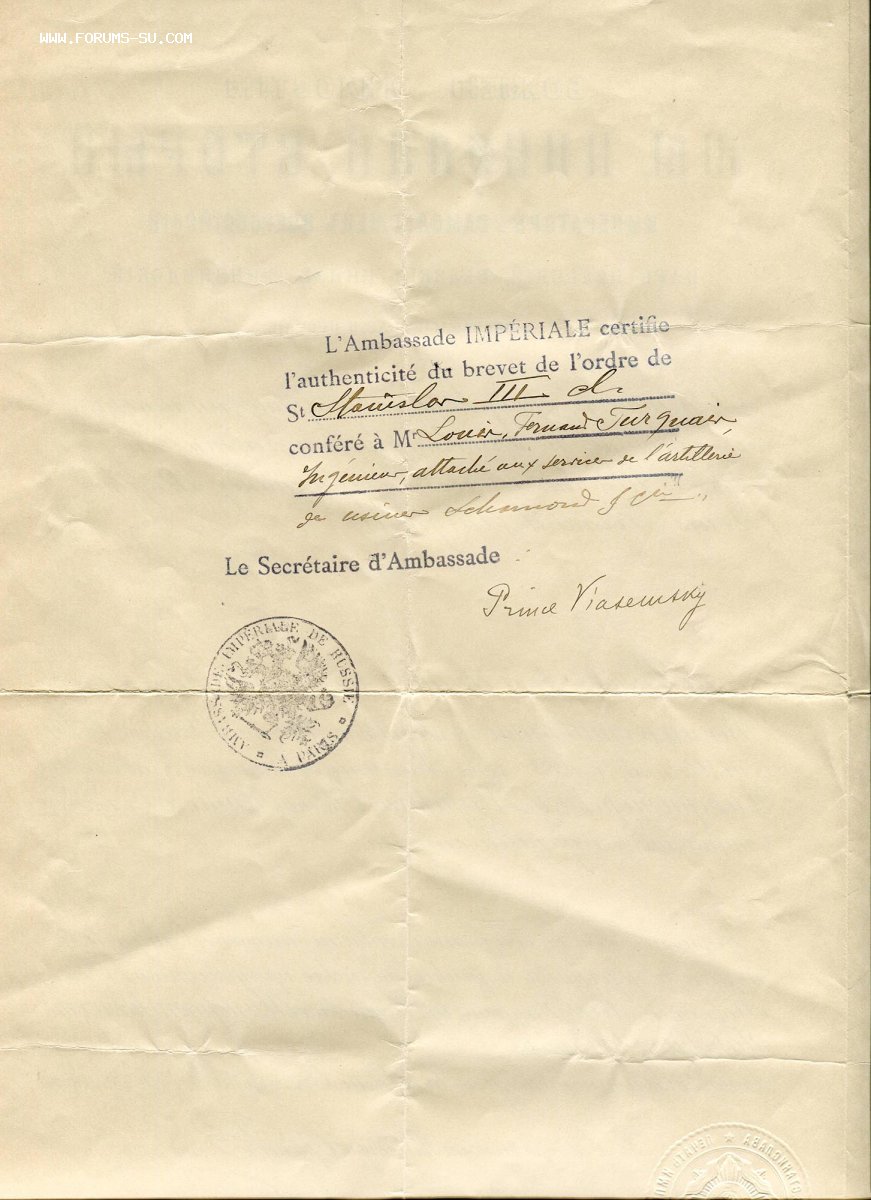 WWW.FORUMS-SU.COM
L'Ambassade IMPÉRIALE certifie
l'authenticité du brevet de l'ordre de
St Stanislas III cl.
conféré à Mr Louis, Fernand Turquais,
Ingénieur, attaché aux services de l'artillerie
de usines & Cie
Le Secrétaire d'Ambassade
Prince Viasemsky
AMBASSADE IMPÉRIALE DE RUSSIE
A PARIS